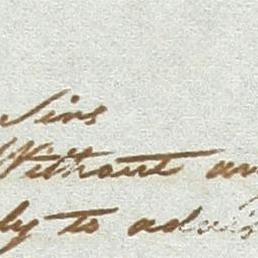 Sins
Without an
ly to advis